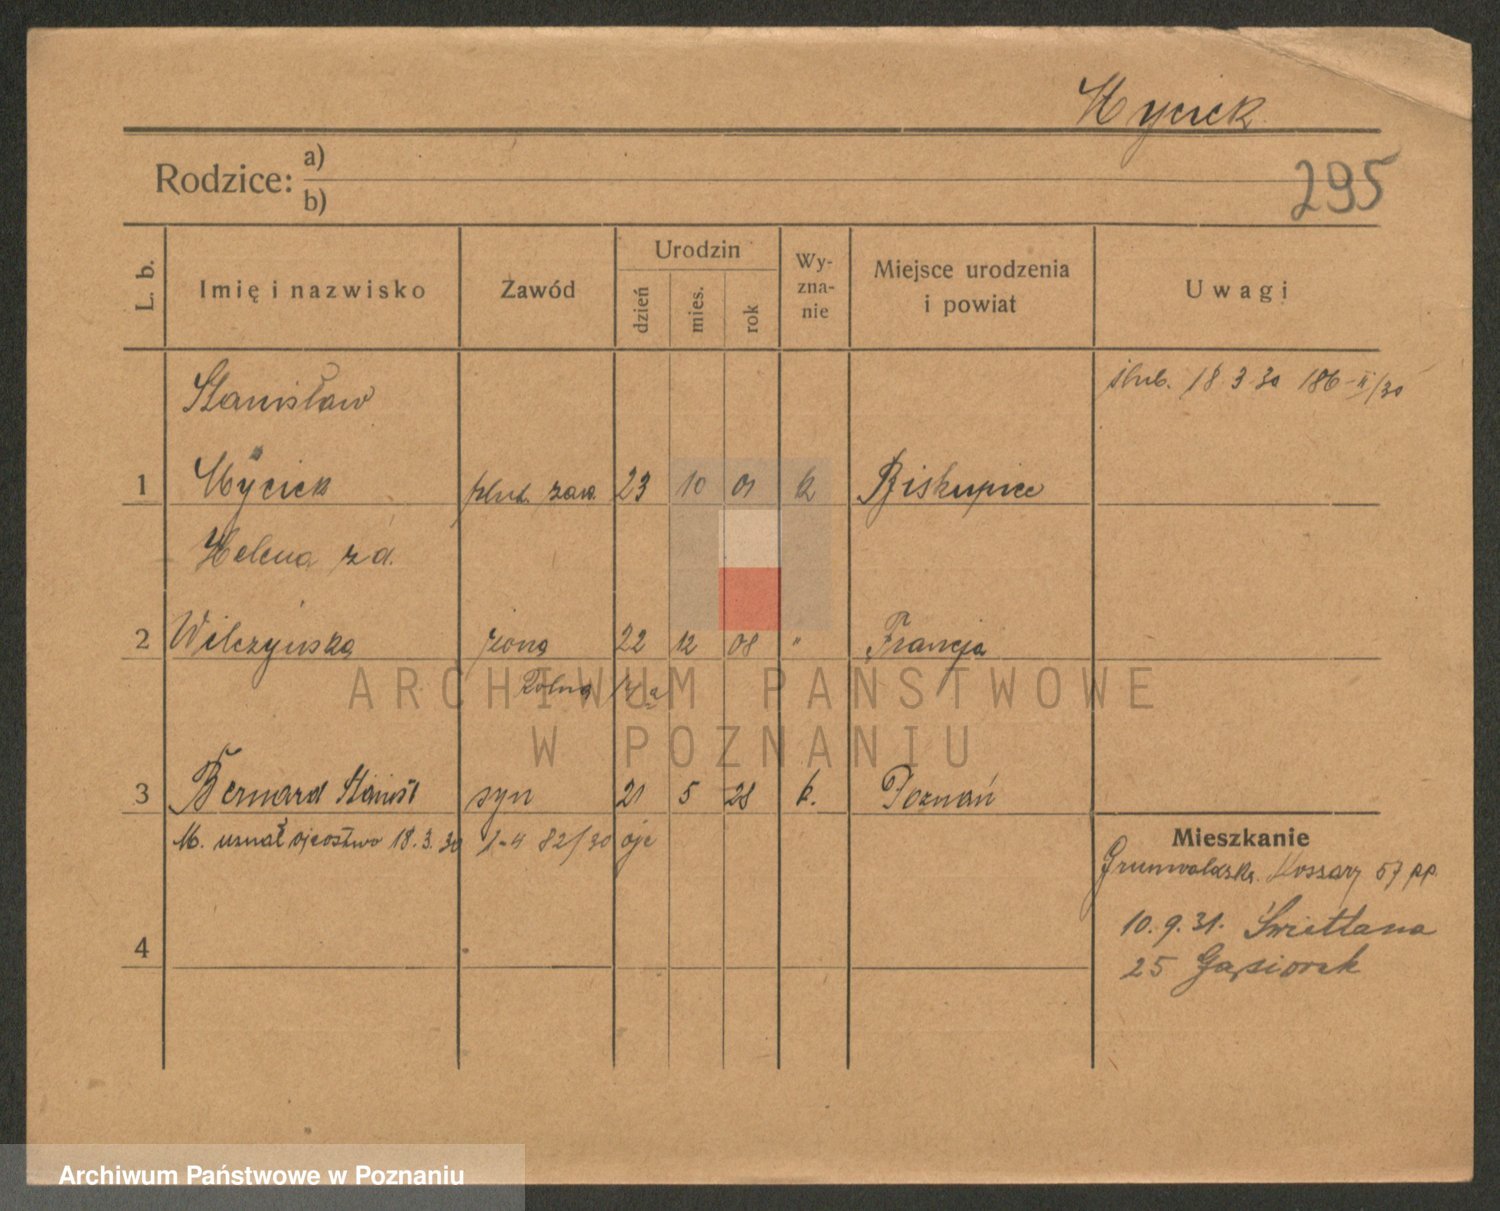 Wycick
Rodzice: a)
b)
295
L. b.
Imię i nazwisko
Zawód
Urodzin
dzień
mies.
rok
Wy-
zna-
nie
Miejsce urodzenia
i powiat
Uwagi
Stanisław
ślub. 18 3 30 186-II/30
1 Wycick plut. zaw. 23 10 01 k Biskupice
Helena zd.
2 Wilczyńska żona 22 12 08 " Francja
Żolna
3 Bernard Stanisł syn 21 5 28 k. Poznań
M. uznał ojcostwo 18.3.30 82/30 ojc
Mieszkanie
Grunwaldzka. Koszary 57 pp.
4
10.9.31. Świetlana
25 Gąsiorek
ARCHIWUM PAŃSTWOWE
W POZNANIU
Archiwum Państwowe w Poznaniu